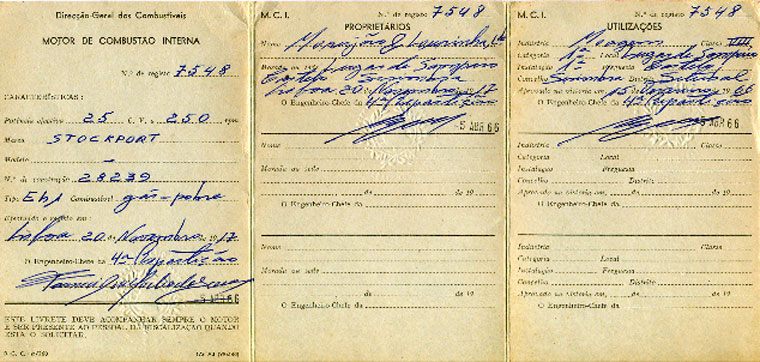 Direcção-Geral dos Combustíveis
MOTOR DE COMBUSTÃO INTERNA
N.º de registo 7548
CARACTERÍSTICAS:
Potência efectiva 25 C. V. a 250 rpm
Marca STOCKPORT
Modelo —
N.º de construção 28239
Tipo Eh1 Combustível gás-pobre
Efectuado o registo em:
Lisboa 20 de Novembro de 1917
O Engenheiro-Chefe da 4ª Repartição
-5 ABR 66
ESTE LIVRETE DEVE ACOMPANHAR SEMPRE O MOTOR
E SER PRESENTE AO PESSOAL DA FISCALIZAÇÃO QUANDO
ESTA O SOLICITAR.
M. C. I. N.º de registo 7548
PROPRIETÁRIOS
Nome
Morada ou sede Lugar de Sampaio
Lisboa 20 de Novembro de 1917
O Engenheiro-Chefe da 4ª Repartição
-5 ABR 66
Nome
Morada ou sede
, de de 19
O Engenheiro-Chefe da
Nome
Morada ou sede
, de de 19
O Engenheiro-Chefe da
M. C. I. N.º de registo 7548
UTILIZAÇÕES
Indústria Moagem Classe VIII
Categoria 1ª Local Lugar de Sampaio
Instalação 1ª Freguesia
Concelho Sesimbra Distrito Setúbal
Aprovado na vistoria em, 15 de de 1966
O Engenheiro-Chefe da 4ª Repartição
-5 ABR 66
Indústria Classe
Categoria Local
Instalação Freguesia
Concelho Distrito
Aprovado na vistoria em, de de 19
O Engenheiro-Chefe da
Indústria Classe
Categoria Local
Instalação Freguesia
Concelho Distrito
Aprovado na vistoria em, de de 19
O Engenheiro-Chefe da